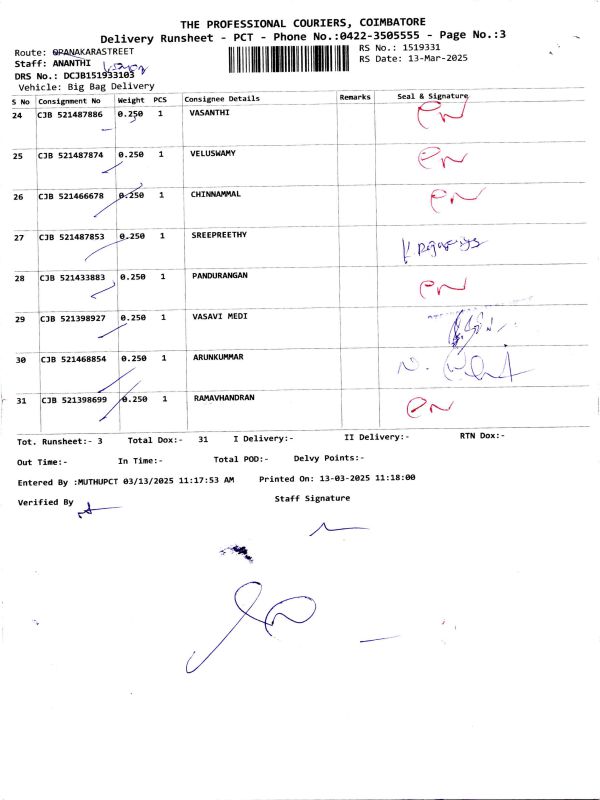 THE PROFESSIONAL COURIERS, COIMBATORE
Delivery Runsheet - PCT - Phone No.:0422-3505555 - Page No.:3
Route: OPANAKARASTREET
RS No.: 1519331
Staff: ANANTHI
RS Date: 13-Mar-2025
DRS No.: DCJB151933103
Vehicle: Big Bag Delivery
S No Consignment No Weight PCS Consignee Details Remarks Seal & Signature
24 CJB 521487886 0.250 1 VASANTHI
25 CJB 521487874 0.250 1 VELUSWAMY
26 CJB 521466678 0.250 1 CHINNAMMAL
27 CJB 521487853 0.250 1 SREEPREETHY
28 CJB 521433883 0.250 1 PANDURANGAN
29 CJB 521398927 0.250 1 VASAVI MEDI
30 CJB 521468854 0.250 1 ARUNKUMMAR
31 CJB 521398699 0.250 1 RAMAVHANDRAN
Tot. Runsheet:- 3 Total Dox:- 31 I Delivery:- II Delivery:- RTN Dox:-
Out Time:- In Time:- Total POD:- Delvy Points:-
Entered By :MUTHUPCT 03/13/2025 11:17:53 AM Printed On: 13-03-2025 11:18:00
Verified By Staff Signature